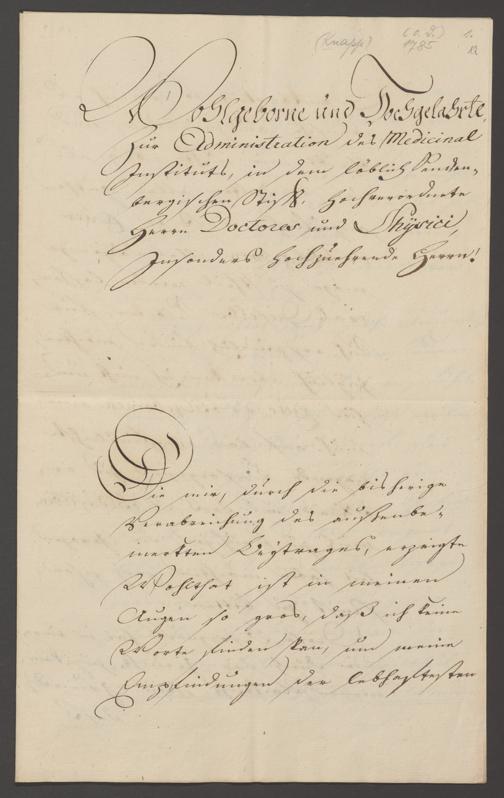 (Knapp)
(o. D.)
1785
1.
Wohlgeborne und Hochgelahrte,
Zur Administration des Medicinal
Instituts, in dem löblich Sencken-
bergischen Stift, Hochverordnete
Herrn Doctores und Physici,
Insonders hochzuehrende Herrn!
Die mir, durch die bisherige
Verabreichung des außenbe-
merkten Beytrages, erzeigte
Wohlthat ist in meinen
Augen so gros, daß ich keine
Worte finden kan, um meine
Empfindungen der lebhaftesten